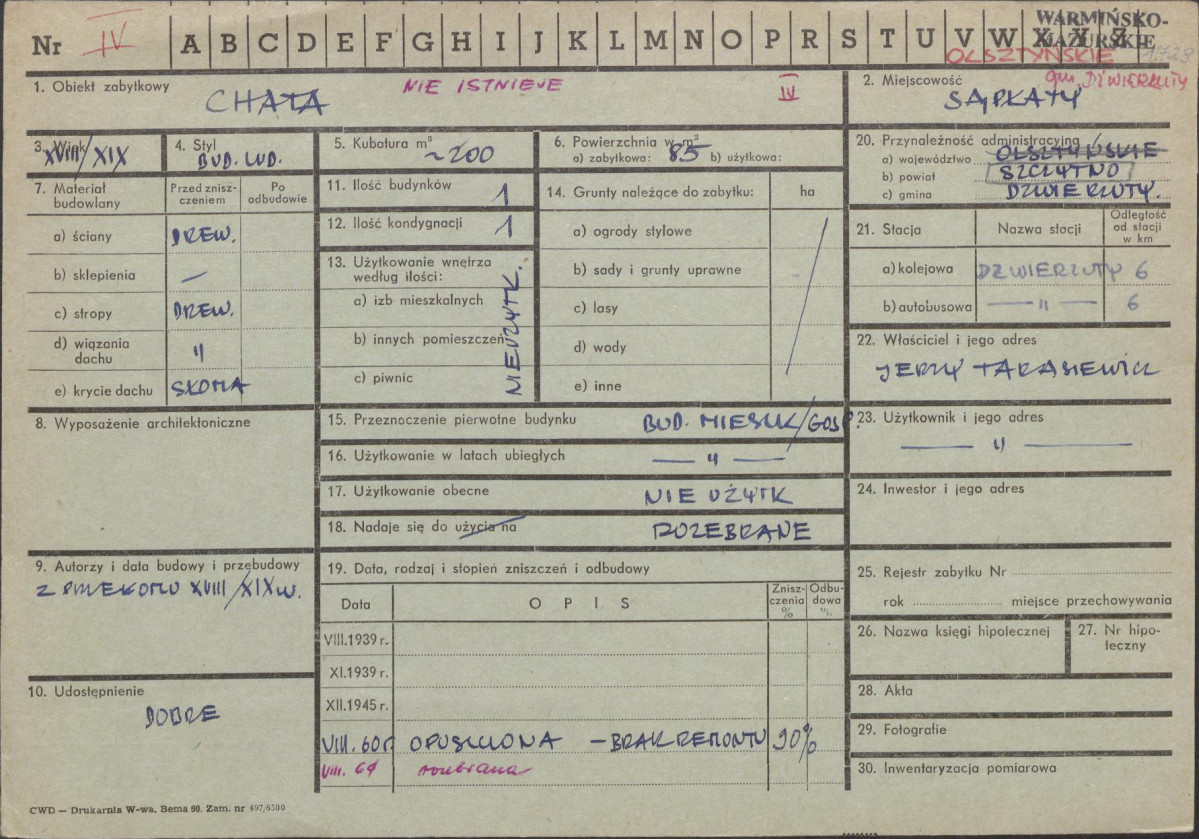 Nr IV A B C D E F G H I J K L M N O P R S T U V W X Y Z
WARMIŃSKO-
MAZURSKIE
OLSZTYŃSKIE
gm. DŹWIERZUTY
1. Obiekt zabytkowy CHATA NIE ISTNIEJE IV
2. Miejscowość SĄPŁATY
3. Wiek XVIII/XIX
4. Styl BUD. LUD.
5. Kubatura m³ ~200
6. Powierzchnia w m²
a) zabytkowa: 85 b) użytkowa:
7. Materiał budowlany
Przed zniszczeniem
Po odbudowie
a) ściany DREW.
b) sklepienia —
c) stropy DREW.
d) wiązania dachu "
e) krycie dachu SŁOMA
8. Wyposażenie architektoniczne
9. Autorzy i data budowy i przebudowy
Z PRZEŁOMU XVIII/XIX w.
10. Udostępnienie
DOBRE
11. Ilość budynków 1
12. Ilość kondygnacji 1
13. Użytkowanie wnętrza
według ilości:
a) izb mieszkalnych
b) innych pomieszczeń
c) piwnic
NIEUŻYTK.
14. Grunty należące do zabytku: ha
a) ogrody stylowe
b) sady i grunty uprawne
c) lasy
d) wody
e) inne
15. Przeznaczenie pierwotne budynku BUD. MIESZK/GOSP.
16. Użytkowanie w latach ubiegłych — " —
17. Użytkowanie obecne NIE UŻYTK
18. Nadaje się do użycia na ROZEBRANE
19. Data, rodzaj i stopień zniszczeń i odbudowy
Data OPIS Zniszczenia % Odbudowa %
VIII.1939 r.
XI.1939 r.
XII.1945 r.
VIII. 60 r. OPUSZCZONA — BRAK REMONTU 90%
rozebrana
20. Przynależność administracyjna
a) województwo OLSZTYŃSKIE
b) powiat SZCZYTNO
c) gmina DŹWIERZUTY.
21. Stacja Nazwa stacji Odległość od stacji w km
a) kolejowa DŹWIERZUTY 6
b) autobusowa — " — 6
22. Właściciel i jego adres
JERZY TARASIEWICZ
23. Użytkownik i jego adres
— " —
24. Inwestor i jego adres
25. Rejestr zabytku Nr
rok miejsce przechowywania
26. Nazwa księgi hipotecznej
27. Nr hipoteczny
28. Akta
29. Fotografie
30. Inwentaryzacja pomiarowa
CWD — Drukarnia W-wa, Bema 60. Zam. nr 497/6500